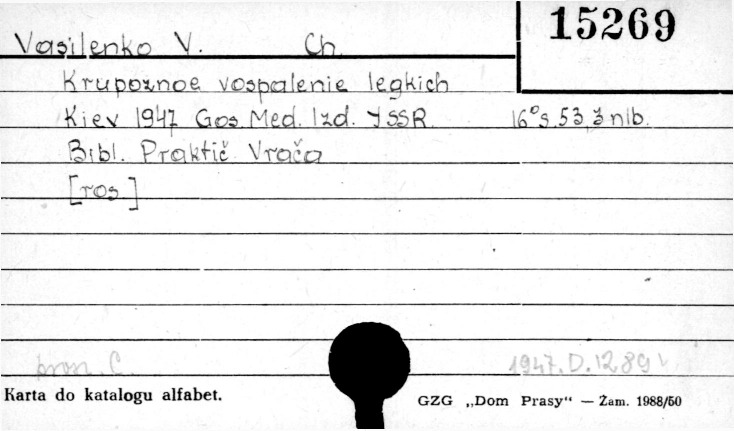 15269
Vasilenko V. Ch.
Krupoznoe vospalenie legkich
Kiev 1947 Gos. Med. Izd. USSR 16° s. 53, 3 nlb.
Bibl. Praktič Vrača
[ros.]
1947. D. 1289
Karta do katalogu alfabet.
GZG „Dom Prasy“ — Żam. 1988/50